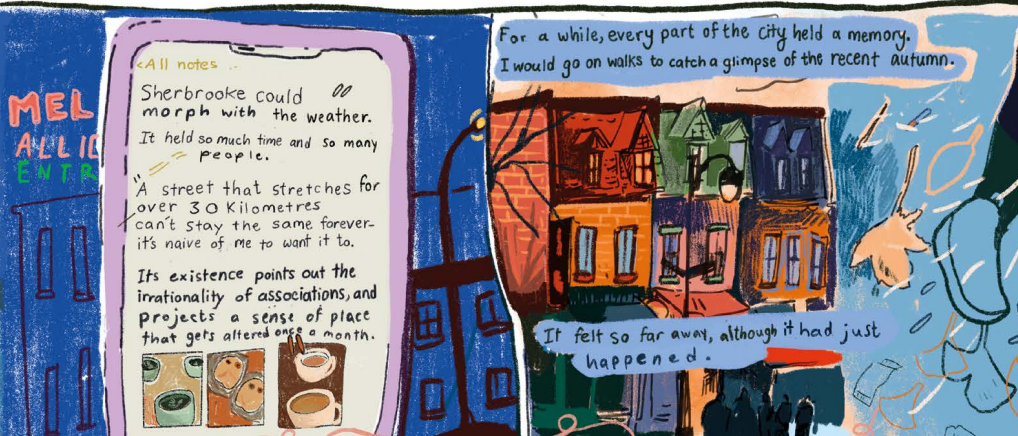 MEL
ALLIE
ENTR
<All notes ..
Sherbrooke could
morph with the weather.
It held so much time and so many
people.
"A street that stretches for
over 30 Kilometres
can't stay the same forever-
it's naive of me to want it to.
Its existence points out the
irrationality of associations, and
projects a sense of place
that gets altered once a month.
For a while, every part of the city held a memory.
I would go on walks to catch a glimpse of the recent autumn.
It felt so far away, although it had just
happened.